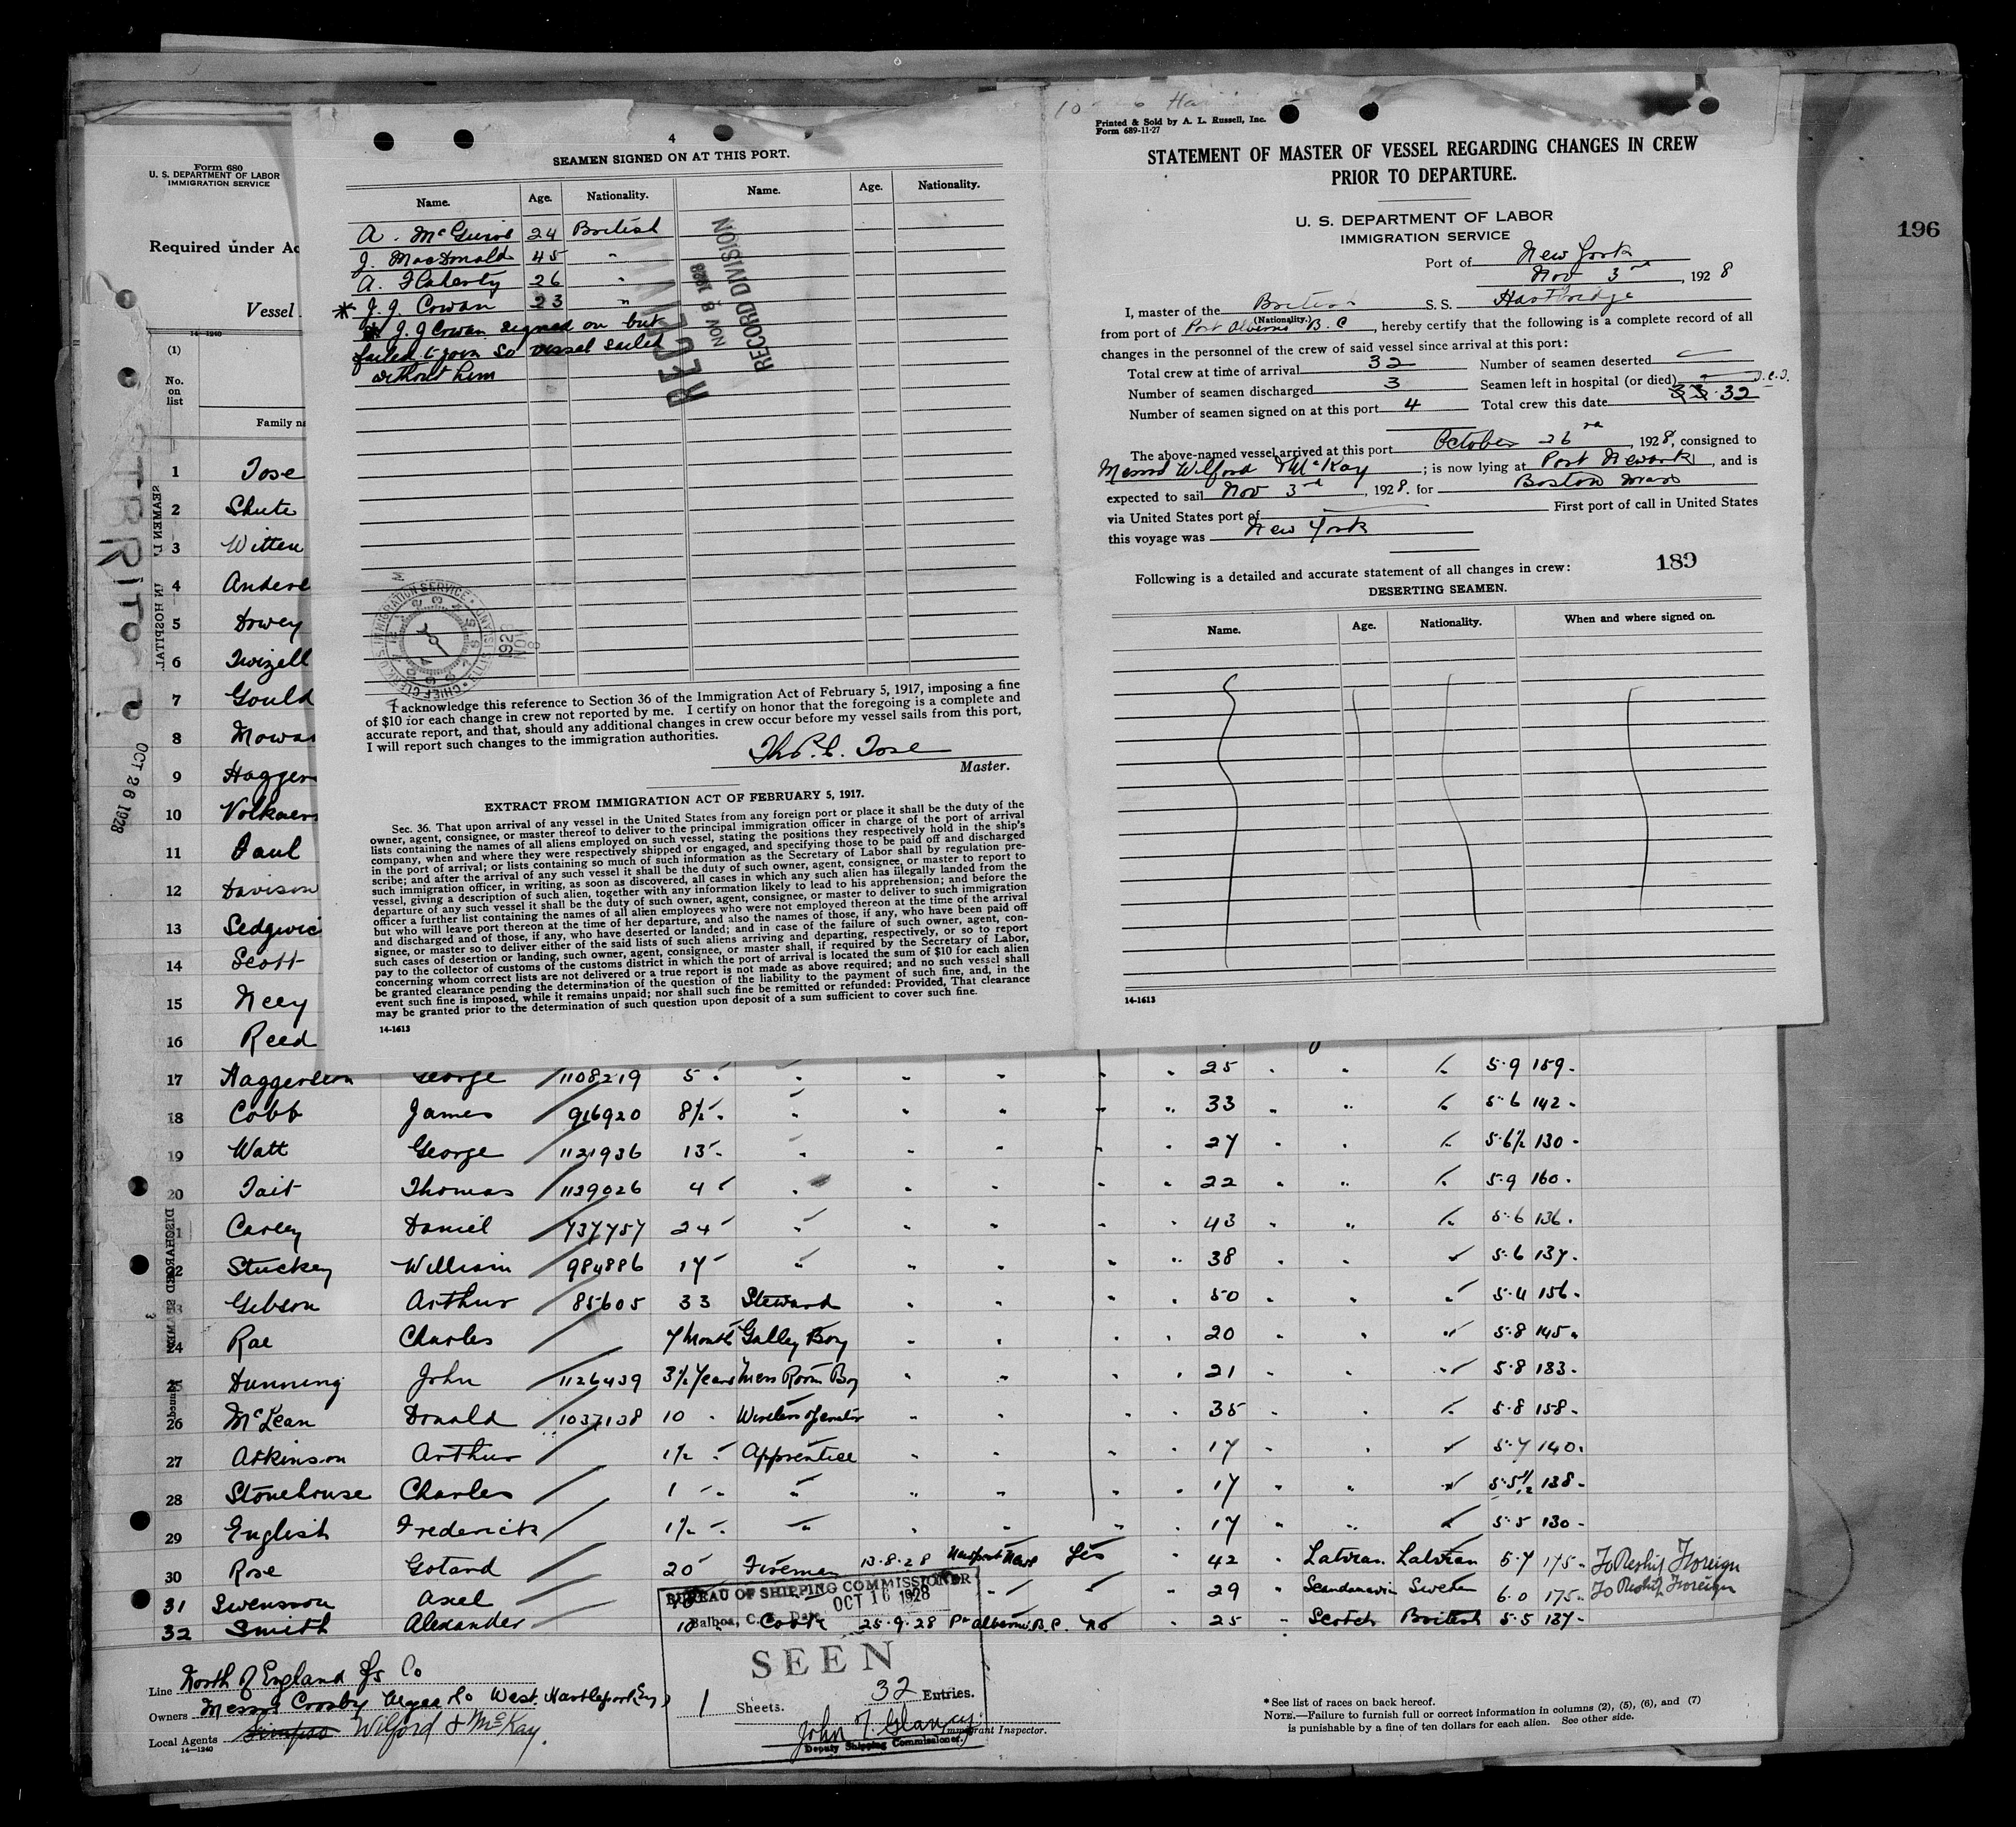 Form 680
U. S. DEPARTMENT OF LABOR
IMMIGRATION SERVICE
Required under Ac
Vessel
14-1240
(1)
No.
on
list
Family na
1 Tose
2 Shute
3 Witten
4
5
6 Twizell
7 Gould
8
9 Hagger
10
11 Paul
12 Davison
13 Sedgwic
14 Scott
15 Neey
16 Reed
SEAMEN IN HOSPITAL.
OCT 26 1928
DISCHARGED SEAMEN
3
4
SEAMEN SIGNED ON AT THIS PORT.
Name. Age. Nationality. Name. Age. Nationality.
A. McGuire 24 British
J. MacDonald 45 "
A. Flaherty 26 "
* J. J. Cowan 23 "
* J. J Cowan signed on but
failed to join so vessel sailed
without him
RECEIVED
NOV 8 1928
RECORD DIVISION
CHIEF CLERK U.S. IMMIGRATION SERVICE
1928
NOV
8
I acknowledge this reference to Section 36 of the Immigration Act of February 5, 1917, imposing a fine
of $10 for each change in crew not reported by me. I certify on honor that the foregoing is a complete and
accurate report, and that, should any additional changes in crew occur before my vessel sails from this port,
I will report such changes to the immigration authorities.
Tose
Master.
EXTRACT FROM IMMIGRATION ACT OF FEBRUARY 5, 1917.
Sec. 36. That upon arrival of any vessel in the United States from any foreign port or place it shall be the duty of the
owner, agent, consignee, or master thereof to deliver to the principal immigration officer in charge of the port of arrival
lists containing the names of all aliens employed on such vessel, stating the positions they respectively hold in the ship's
company, when and where they were respectively shipped or engaged, and specifying those to be paid off and discharged
in the port of arrival; or lists containing so much of such information as the Secretary of Labor shall by regulation pre-
scribe; and after the arrival of any such vessel it shall be the duty of such owner, agent, consignee, or master to report to
such immigration officer, in writing, as soon as discovered, all cases in which any such alien has illegally landed from the
vessel, giving a description of such alien, together with any information likely to lead to his apprehension; and before the
departure of any such vessel it shall be the duty of such owner, agent, consignee, or master to deliver to such immigration
officer a further list containing the names of all alien employees who were not employed thereon at the time of the arrival
but who will leave port thereon at the time of her departure, and also the names of those, if any, who have been paid off
and discharged and of those, if any, who have deserted or landed; and in case of the failure of such owner, agent, con-
signee, or master so to deliver either of the said lists of such aliens arriving and departing, respectively, or so to report
such cases of desertion or landing, such owner, agent, consignee, or master shall, if required by the Secretary of Labor,
pay to the collector of customs of the customs district in which the port of arrival is located the sum of $10 for each alien
concerning whom correct lists are not delivered or a true report is not made as above required; and no such vessel shall
be granted clearance pending the determination of the question of the liability to the payment of such fine, and, in the
event such fine is imposed, while it remains unpaid; nor shall such fine be remitted or refunded: Provided, That clearance
may be granted prior to the determination of such question upon deposit of a sum sufficient to cover such fine.
14-1613
Printed & Sold by A. L. Russell, Inc.
Form 689-11-27
STATEMENT OF MASTER OF VESSEL REGARDING CHANGES IN CREW
PRIOR TO DEPARTURE.
U. S. DEPARTMENT OF LABOR
IMMIGRATION SERVICE
Port of New York
Nov 3rd, 1928
I, master of the British S. S. Hartbridge
(Nationality.)
from port of Port Alberni B. C, hereby certify that the following is a complete record of all
changes in the personnel of the crew of said vessel since arrival at this port:
Total crew at time of arrival 32 Number of seamen deserted
Number of seamen discharged 3 Seamen left in hospital (or died)
Number of seamen signed on at this port 4 Total crew this date 33 32
The above-named vessel arrived at this port October 26, 1928, consigned to
Messrs Wilford & McKay; is now lying at Port Newark, and is
expected to sail Nov 3rd, 1928. for Boston Mass
via United States port of First port of call in United States
this voyage was New York
189
Following is a detailed and accurate statement of all changes in crew:
DESERTING SEAMEN.
Name. Age. Nationality. When and where signed on.
14-1613
196
17 Haggerston George 1108219 5 " " " " " " 25 " " " 5·9 159
18 Cobb James 916920 8½ " " " " " " 33 " " " 5·6 142
19 Watt George 1121936 13 " " " " " " 27 " " " 5·6½ 130
20 Tait Thomas 1129026 4 " " " " " " 22 " " " 5·9 160
21 Carey Daniel 737757 24 " " " " " " 43 " " " 5·6 136
22 Stuckey William 984886 17 " " " " " " 38 " " " 5·6 137
23 Gibson Arthur 85605 33 Steward " " " " 50 " " " 5·4 156
24 Rae Charles 7 Months Galley Boy " " " " 20 " " " 5·8 145
25 Dunning John 1126439 3½ Years Mess Room Boy " " " " 21 " " " 5·8 133
26 McLean Donald 1037138 10 " Wireless Operator " " " " 35 " " " 5·8 158
27 Atkinson Arthur 1½ " Apprentice " " " " 17 " " " 5·7 140
28 Stonehouse Charles 1 " " " " " " 17 " " " 5·5½ 138
29 English Frederick 1½ " " " " " " 17 " " " 5·5 130
30 Rose Gotard 20 Fireman 13·8·28 Yes " 42 " Latvian Latvian 5·7 175 To Reship Foreign
31 Swensson Axel " " " 29 " Scandanavin Sweden 6·0 175 To Reship Foreign
32 Smith Alexander 10 Cook 25·9·28 Pt Alberni B.C. No " 25 " Scotch British 5·5 137
BUREAU OF SHIPPING COMMISSIONER
Balboa, C. Z. Date OCT 16 1928
SEEN
1 Sheets. 32 Entries.
John J Glancy
Immigrant Inspector.
Deputy Shipping Commissioner.
Line North of England Ss Co
Owners Messrs Crosby Magee & Co West Hartlepool Eng
Local Agents Simpson Wilford & McKay.
14-1240
*See list of races on back hereof.
NOTE.—Failure to furnish full or correct information in columns (2), (5), (6), and (7)
is punishable by a fine of ten dollars for each alien. See other side.